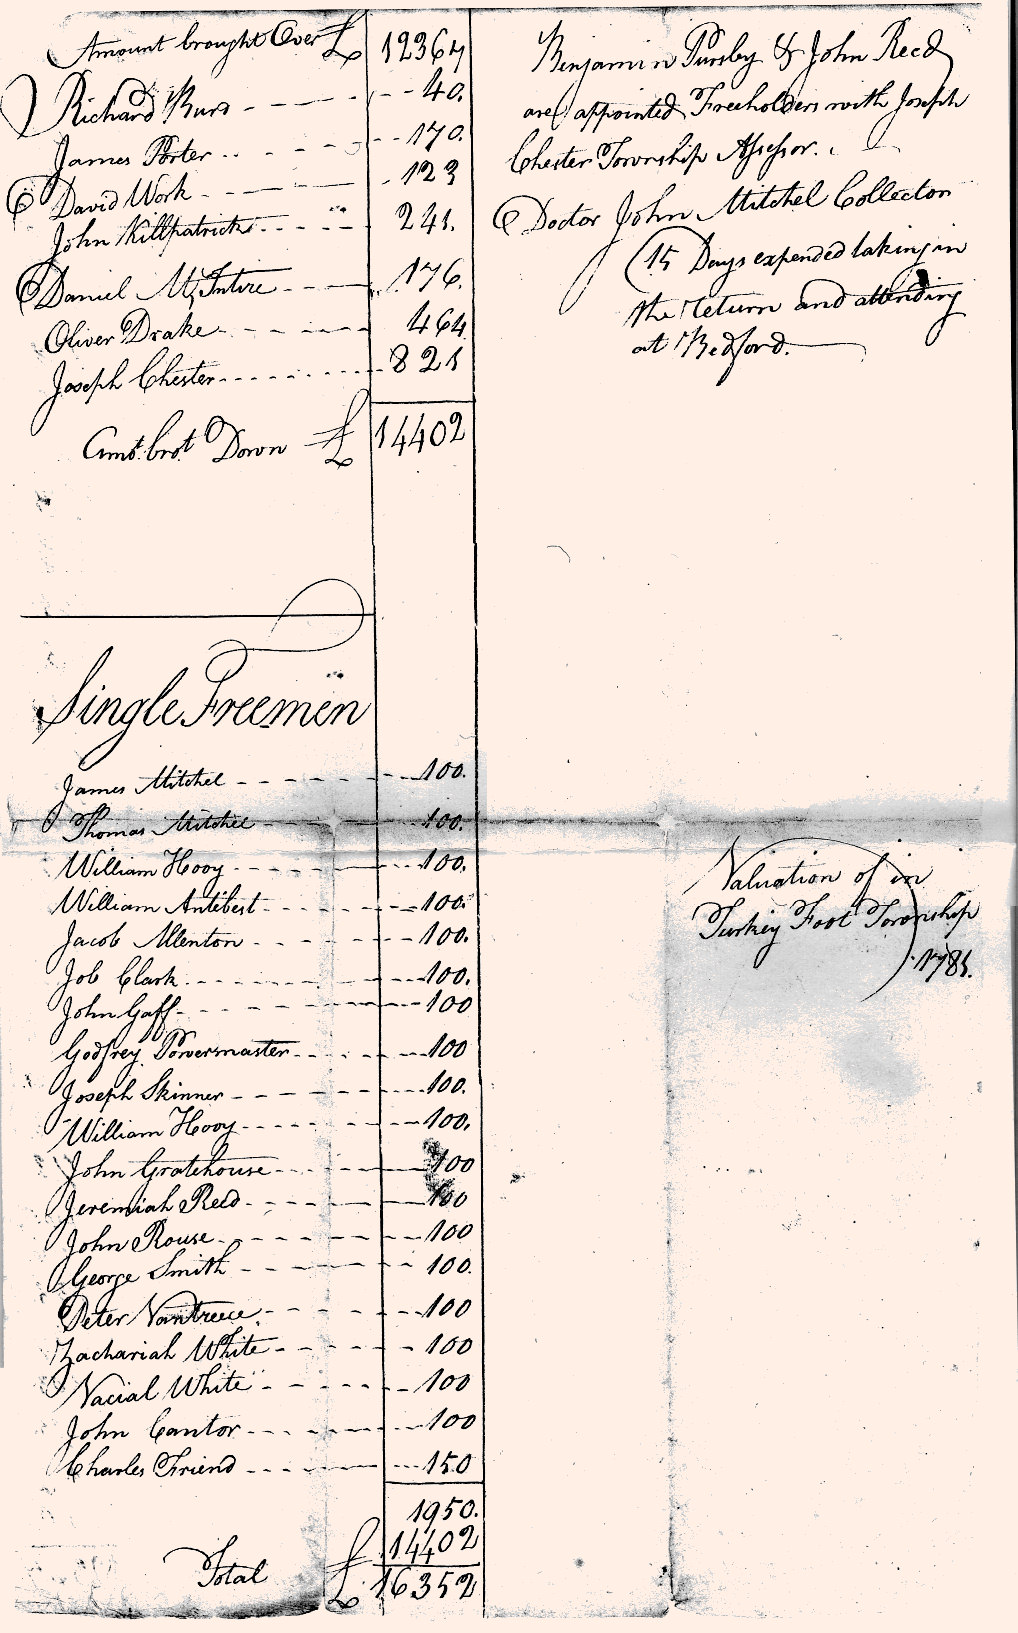 Amount brought Over £ 12367
Richard Burs 40.
James Porter 170.
David Work 123
John Killpatrick 241.
Daniel McIntire 176.
Oliver Drake 464
Joseph Chester 821
Amt. brot. Down £ 14402
Single Freemen
James Mitchel 100.
Thomas Mitchel 100.
William Hooy 100.
William Antibest 100.
Jacob Allenton 100.
Job Clark 100.
John Gaff 100
Godfrey Powermaster 100
Joseph Skinner 100.
William Hooy 100.
John Gratehouse 100
Jeremiah Reed 100
John Rouse 100
George Smith 100.
Peter Vantreece 100
Zachariah White 100
Vacial White 100
John Cantor 100
Charles Friend 150
1950.
14402
Total £ 16352
Benjamin Pursley & John Reed
are appointed Freeholders with Joseph
Chester Township Assessor.
Doctor John Mitchel Collector
15 Days expended taking in
the return and attending
at Bedford.
Valuation of in
Turkey Foot Township
1781.